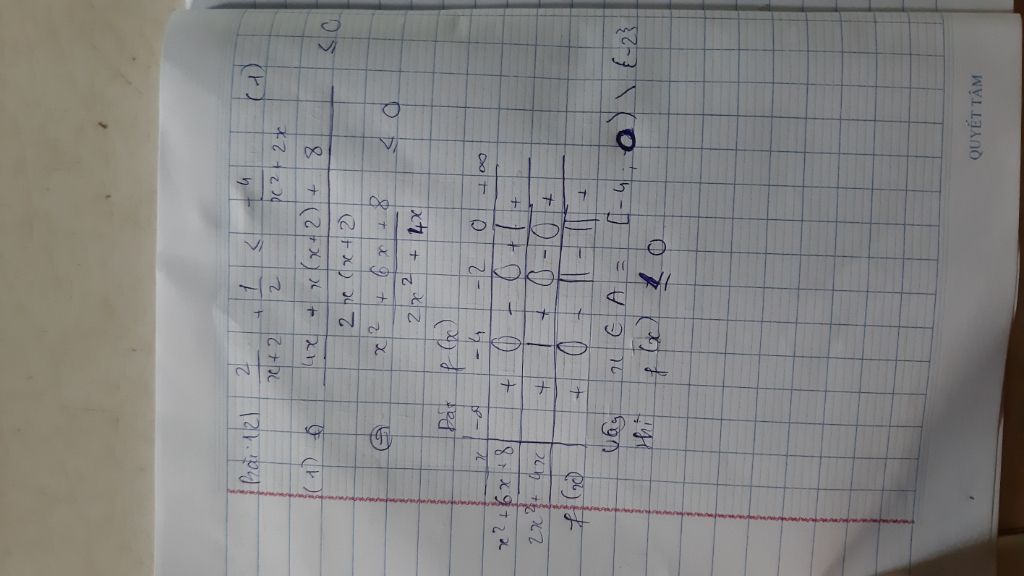 Bài 12) 2/(x+2) + 1/2 ≤ -4/(x²+2x) (1)
(1) ⇔ (4x + x(x+2) + 8)/(2x(x+2)) ≤ 0
⇔ (x² + 6x + 8)/(2x² + 4x) ≤ 0
Đặt f(x)
x | -∞ -4 -2 0 +∞
x²+6x+8 | + 0 - 0 + | +
2x²+4x | + | + 0 - 0 +
f(x) | + 0 - || - || +
Vậy x ∈ A = [-4; 0) \ {-2}
thì f(x) ≤ 0
QUYẾT TÂM